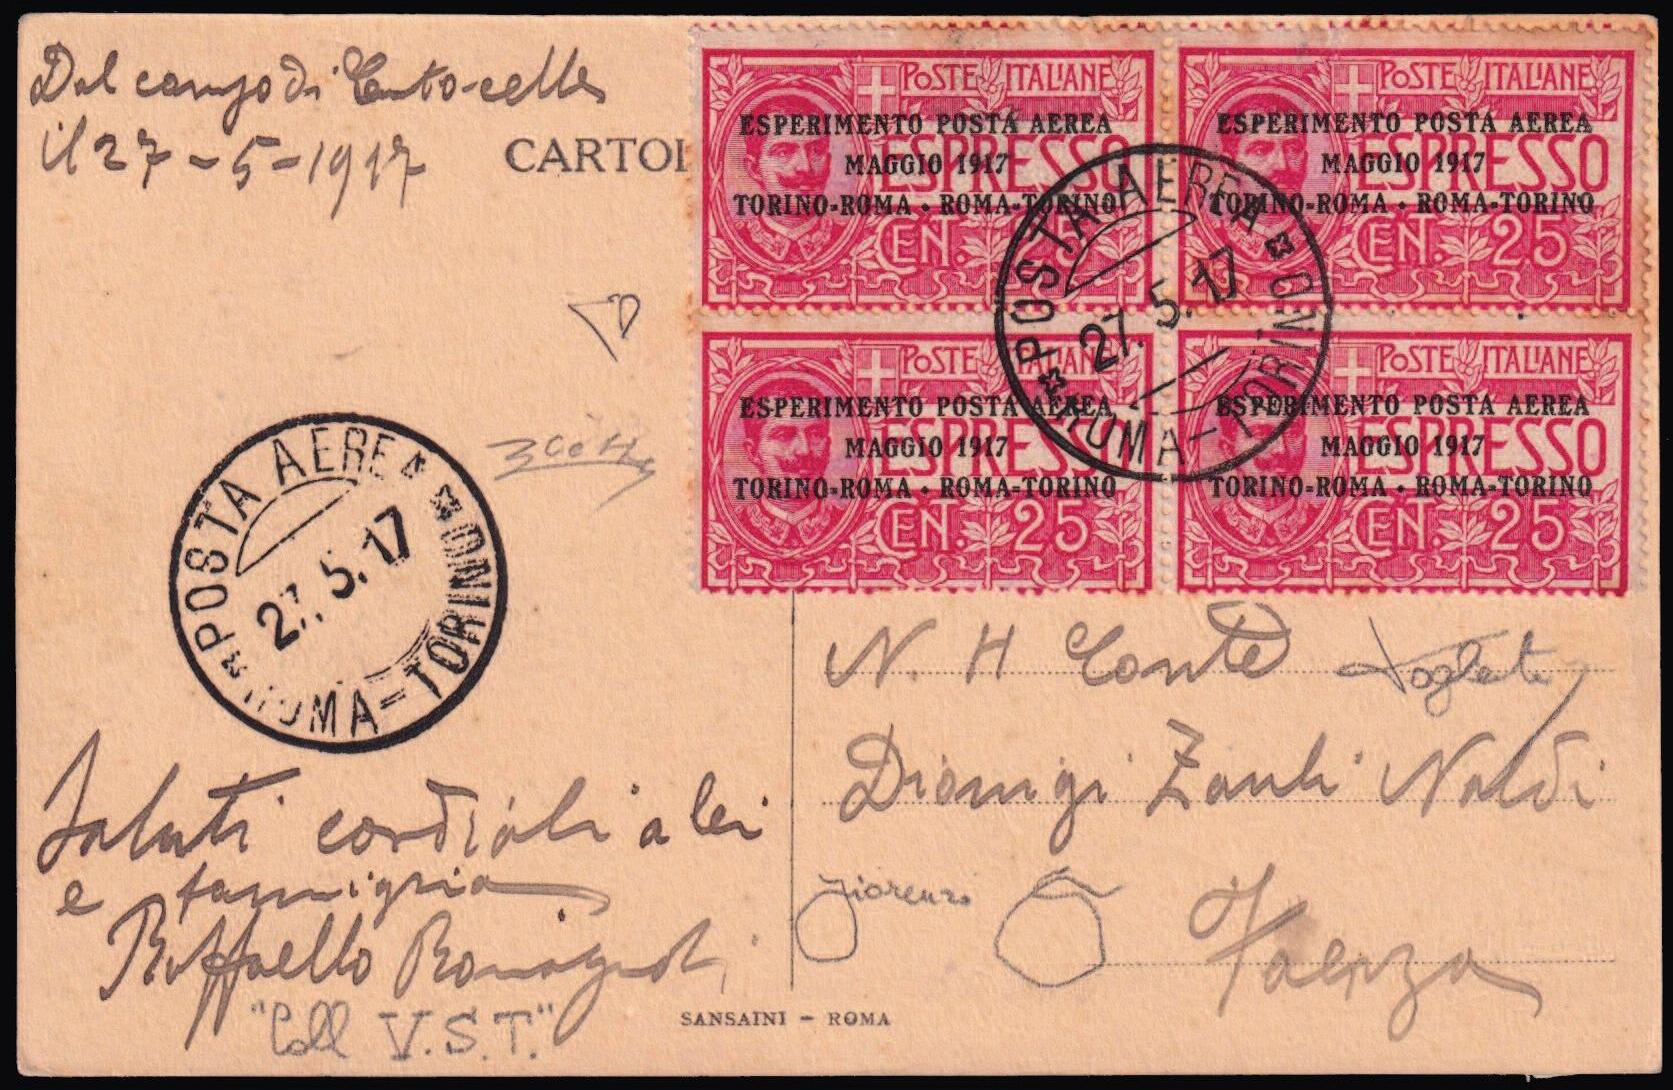 Dal campo di Centocelle
il 27-5-1917
CARTOL
POSTE ITALIANE
ESPERIMENTO POSTA AEREA
MAGGIO 1917
ESPRESSO
TORINO-ROMA • ROMA-TORINO
CEN. 25
POSTE ITALIANE
ESPERIMENTO POSTA AEREA
MAGGIO 1917
ESPRESSO
TORINO-ROMA • ROMA-TORINO
CEN. 25
POSTE ITALIANE
ESPERIMENTO POSTA AEREA
MAGGIO 1917
ESPRESSO
TORINO-ROMA • ROMA-TORINO
CEN. 25
POSTE ITALIANE
ESPERIMENTO POSTA AEREA
MAGGIO 1917
ESPRESSO
TORINO-ROMA • ROMA-TORINO
CEN. 25
POSTA AEREA
27. 5. 17
ROMA-TORINO
POSTA AEREA
27. 5. 17
ROMA-TORINO
Saluti cordiali a lei
e famiglia
Raffaello Romagnoli
"Coll V.S.T."
N. H Conte
Dionigi Zauli Naldi
Fiorenzi
Faenza
SANSAINI - ROMA